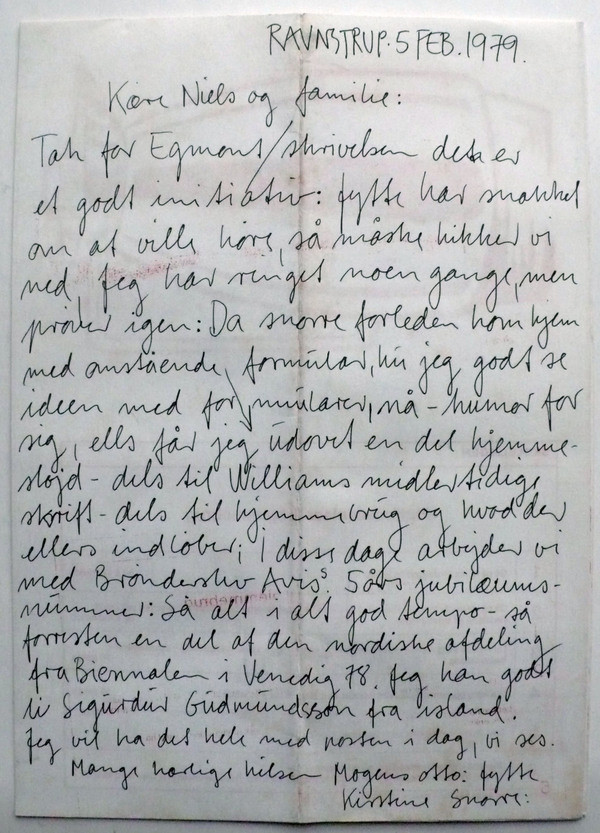 RAVNSTRUP. 5 FEB. 1979.
Kære Niels og familie:
Tak for Egmont/skrivelsen det er
et godt initiativ: Jytte har snakket
om at ville høre, så måske kikker vi
ned, Jeg har ringet noen gange, men
prøver igen: Da snorre forleden kom hjem
med omstående, formular, ku jeg godt se
ideen med formularer, nå - humor for
sig, ells får jeg udøvet en del hjemme-
sløjd - dels til Williams midlertidige
skrift - dels til hjemmebrug og hvad der
ellers indløber; I disse dage arbejder vi
med Brønderslev Avis's 5års jubilæums-
nummer: Så alt i alt god tempo - så
forresten en del af den nordiske afdeling
fra Biennalen i Venedig 78. Jeg kan godt
li Sigurdur Gudmundsson fra island.
Jeg vil ha det hele med posten i dag, vi ses.
Mange hærlige hilsen Mogens otto: Jytte
Kirstine Snorre: